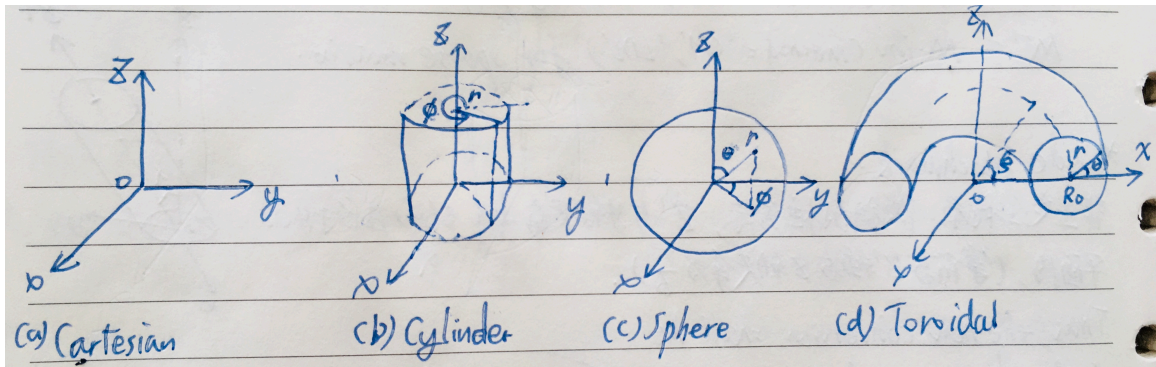 Z
O
y
x
(a) Cartesian
Z
ϕ r
y
x
(b) Cylinder
Z
θ r
ϕ
y
x
(c) Sphere
Z
r θ
ξ
x
o
R₀
y
(d) Toroidal